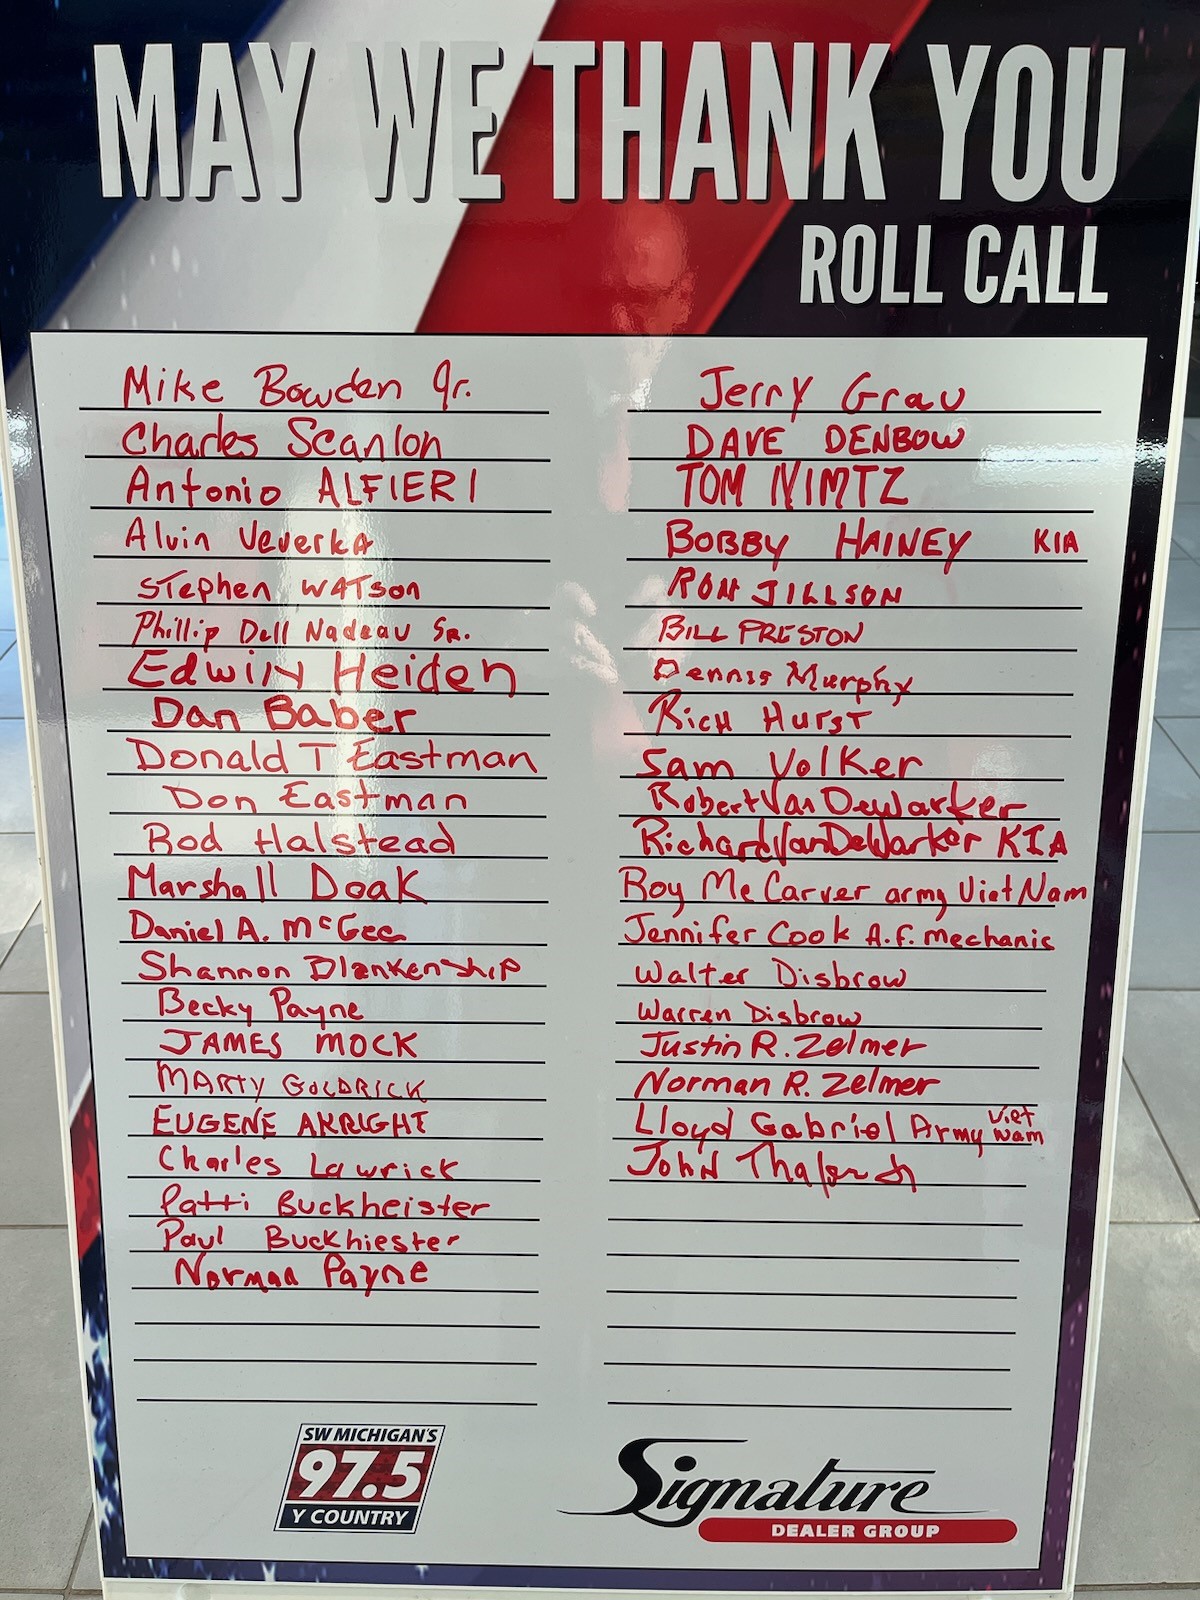 MAY WE THANK YOU
ROLL CALL
Mike Bowden Jr.
Charles Scanlon
Antonio ALFIERI
Alvin Veverka
Stephen WATSON
Phillip Dell Nadeau Sr.
Edwin Heiden
Dan Baber
Donald T Eastman
Don Eastman
Rod Halstead
Marshall Doak
Daniel A. McGee
Shannon Blankenship
Becky Payne
JAMES MOCK
MARTY GOLDRICK
EUGENE AKRIGHT
Charles Lawrick
Patti Buckheister
Paul Buckhiester
Norman Payne
Jerry Grau
DAVE DENBOW
TOM NIMTZ
BOBBY HAINEY KIA
RON JILLSON
BILL PRESTON
Dennis Murphy
RICH HURST
Sam Volker
Robert VanDeWarker
Richard VanDeWarker KIA
Roy McCarver army Viet Nam
Jennifer Cook A.F. mechanic
Walter Disbrow
Warren Disbrow
Justin R. Zelmer
Norman R. Zelmer
Lloyd Gabriel Army Viet Nam
John
SW MICHIGAN'S
97.5
Y COUNTRY
Signature
DEALER GROUP